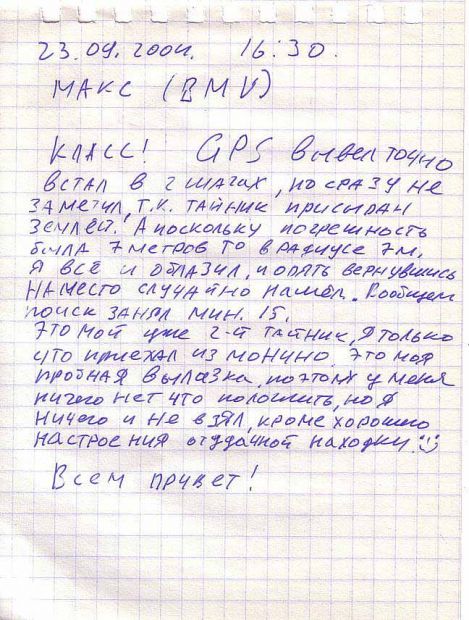 23.09.2004. 16:30.
МАКС (BMV)
КЛАСС! GPS вывел точно
встал в 2 шагах, но сразу не
заметил, т.к. тайник присыпан
землёй. А поскольку погрешность
была 7 метров то в радиусе 7м.
я всё и облазил, и опять вернувшись
на место случайно нашёл. Вообщем
поиск занял мин. 15.
Это мой уже 2-й тайник, я только
что приехал из Монино. Это моя
пробная вылазка, поэтому у меня
ничего нет что положить, но я
ничего и не взял, кроме хорошего
настроения от удачной находки.
Всем привет!